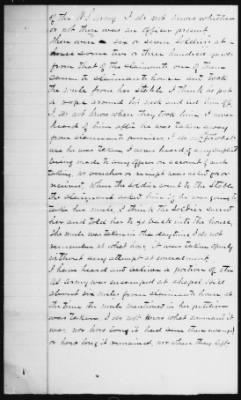 of the U.S. Army. I do not know whether
or not there was an officer present.
There were six or seven soldiers at
house some two or three hundred yards
from that of the claimants one of them
came to claimants house and took
the mule from her stable. I think he put
a rope around his neck and led him off.
I do not know when they took him. I never
heard of him after he was taken away
from claimants premises. I do
was he was taken. I never heard of any complaint
being made to any officer on account of such
taking, or voucher or receipt was asked for or
received. When the soldier went to the stable
the claimant asked him if he was going to
take her mule, I think the soldier cursed
her and told her to go back into the house.
The mule was taken in the daytime I do not
remember at what hour, it was taken openly
without any attempt at concealment.
I have heard and believe a portion of the
US Army was encamped at Chapel Hill
about six miles from claimants house at
the time the mule mentioned in her petition
was taken. I do not know what command it
was, nor how long it had been there encamped
or how long it remained, nor when they left